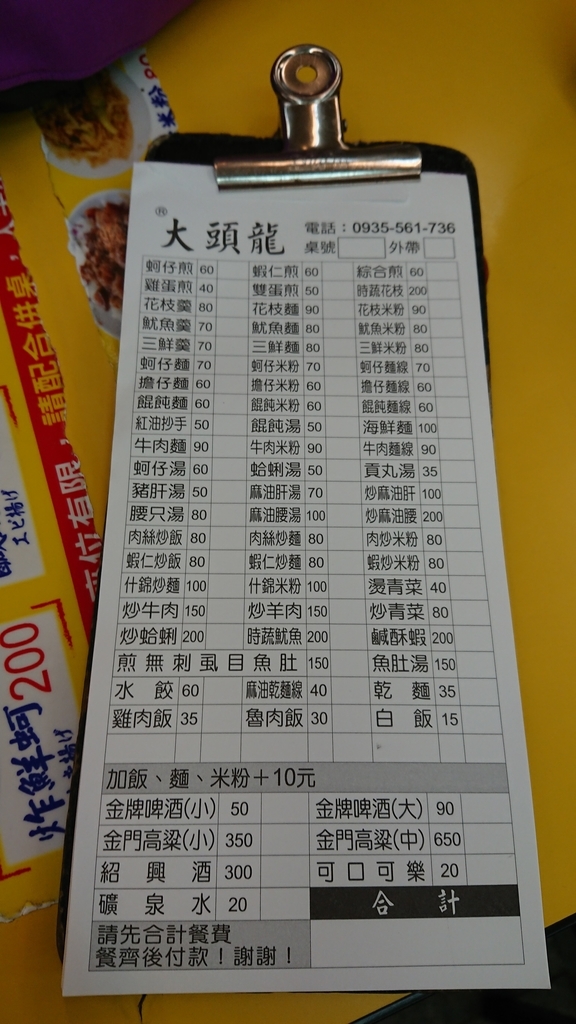 米粉 80
® 大頭龍 電話：0935-561-736
桌號 外帶
蚵仔煎 60 蝦仁煎 60 綜合煎 60
雞蛋煎 40 雙蛋煎 50 時蔬花枝 200
花枝羹 80 花枝麵 90 花枝米粉 90
魷魚羹 70 魷魚麵 80 魷魚米粉 80
三鮮羹 70 三鮮麵 80 三鮮米粉 80
蚵仔麵 70 蚵仔米粉 70 蚵仔麵線 70
擔仔麵 60 擔仔米粉 60 擔仔麵線 60
餛飩麵 60 餛飩米粉 60 餛飩麵線 60
紅油抄手 50 餛飩湯 50 海鮮麵 100
牛肉麵 90 牛肉米粉 90 牛肉麵線 90
蚵仔湯 60 蛤蜊湯 50 貢丸湯 35
豬肝湯 50 麻油肝湯 70 炒麻油肝 100
腰只湯 80 麻油腰湯 100 炒麻油腰 200
肉絲炒飯 80 肉絲炒麵 80 肉炒米粉 80
蝦仁炒飯 80 蝦仁炒麵 80 蝦炒米粉 80
什錦炒麵 100 什錦米粉 100 燙青菜 40
炒牛肉 150 炒羊肉 150 炒青菜 80
炒蛤蜊 200 時蔬魷魚 200 鹹酥蝦 200
煎無刺虱目魚肚 150 魚肚湯 150
水餃 60 麻油乾麵線 40 乾麵 35
雞肉飯 35 魯肉飯 30 白飯 15
加飯、麵、米粉＋10元
金牌啤酒(小) 50 金牌啤酒(大) 90
金門高粱(小) 350 金門高粱(中) 650
紹興酒 300 可口可樂 20
礦泉水 20 合計
請先合計餐費
餐齊後付款！謝謝！
請配合供桌，
位有限，
エビ揚げ
炸鮮蚵 200
揚げ